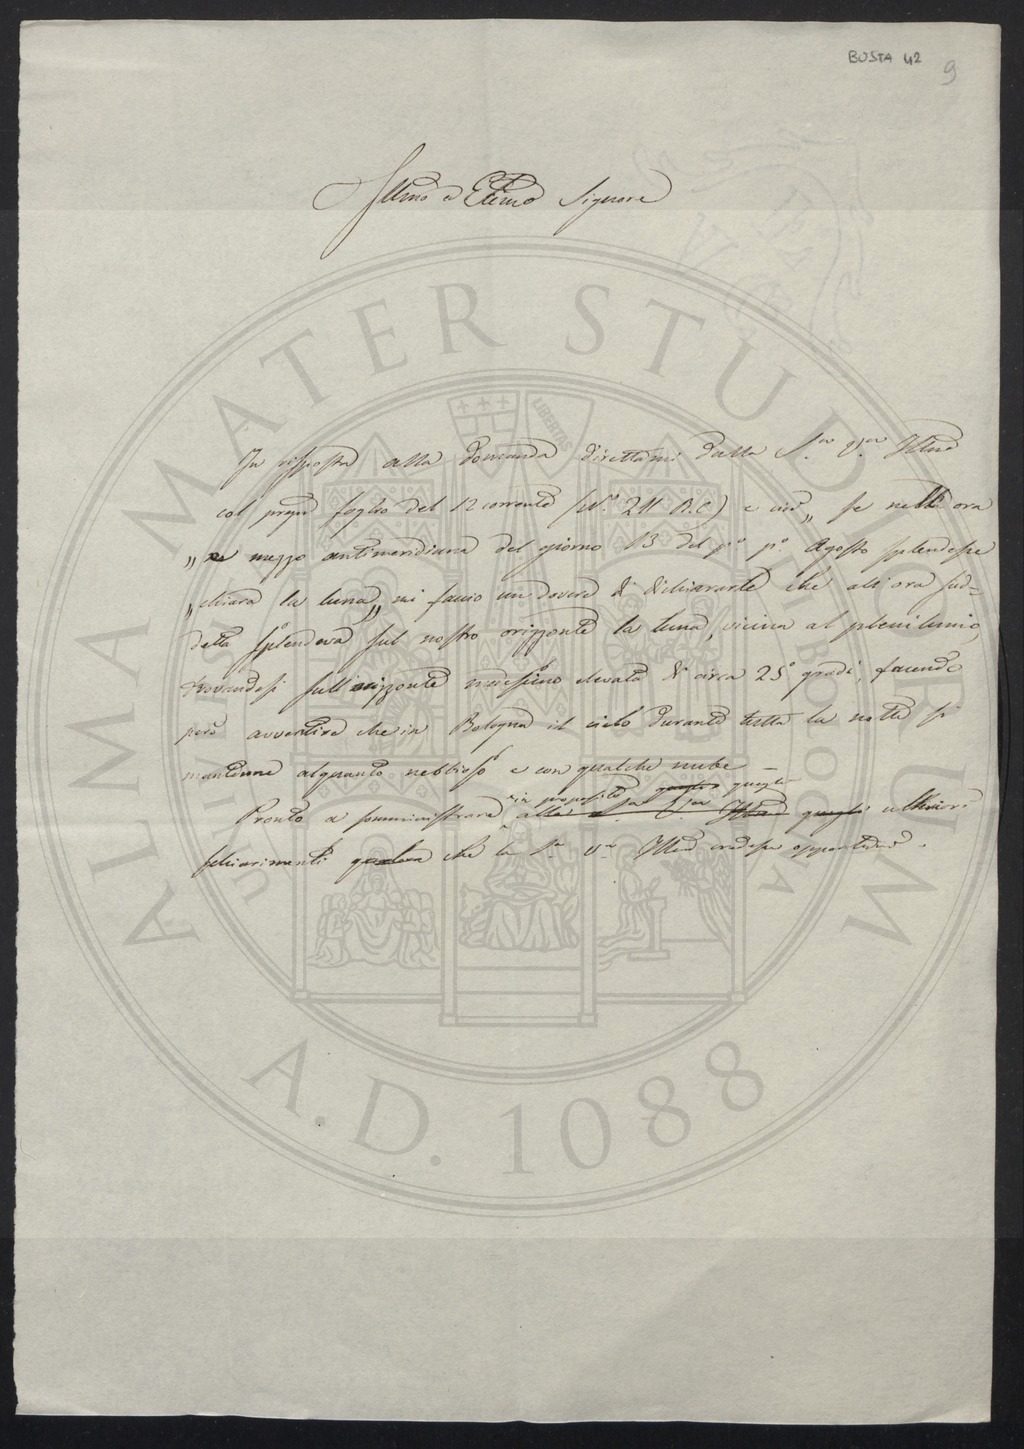 BUSTA 42 9
Illmo ed Ecc.mo Signore
In risposta alla domanda direttami dalla S.ria V.ra Illma
col preg.o foglio del 12 corrente (N.° 211 R.C.) e cioè „ se nelle ora
„ e mezzo antimeridiana del giorno 13 del p.° p.° Agosto splendesse
„ chiara la luna „ mi faccio un dovere di dichiararle che all'ora sud=
detta splendeva sul nostro orizzonte la luna, vicina al plenilunio,
trovandosi sull'orizzonte medesimo elevata di circa 25° gradi, facendo
però avvertire che in Bologna il cielo durante tutta la notte si
mantenne alquanto nebbioso e con qualche nube —
in proposito questi quegli
Pronto a somministrare alla S.ria V.ra Illma quegli ulteriori
schiarimenti qualora che la S.ria V.ra Illma credesse opportuno.
ALMA MATER STUDIORUM
UNIVERSITÀ DI BOLOGNA
LIBERTAS
A.D. 1088